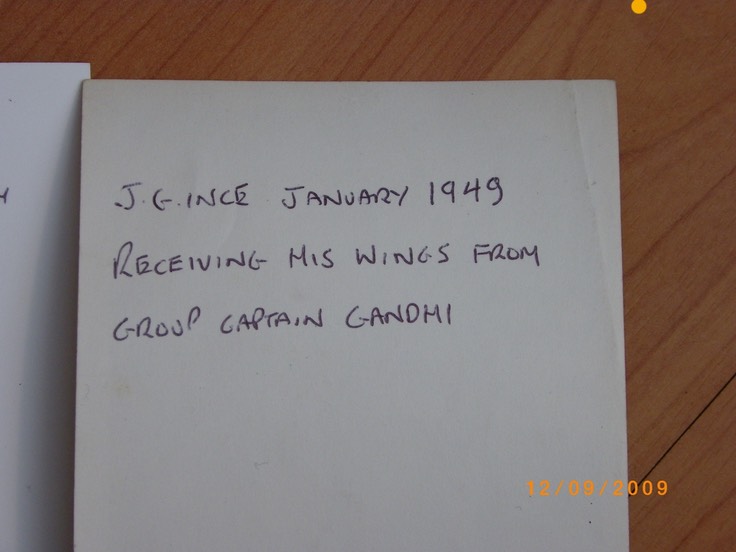 J.G.INCE JANUARY 1949
RECEIVING HIS WINGS FROM
GROUP CAPTAIN GANDHI
12/09/2009